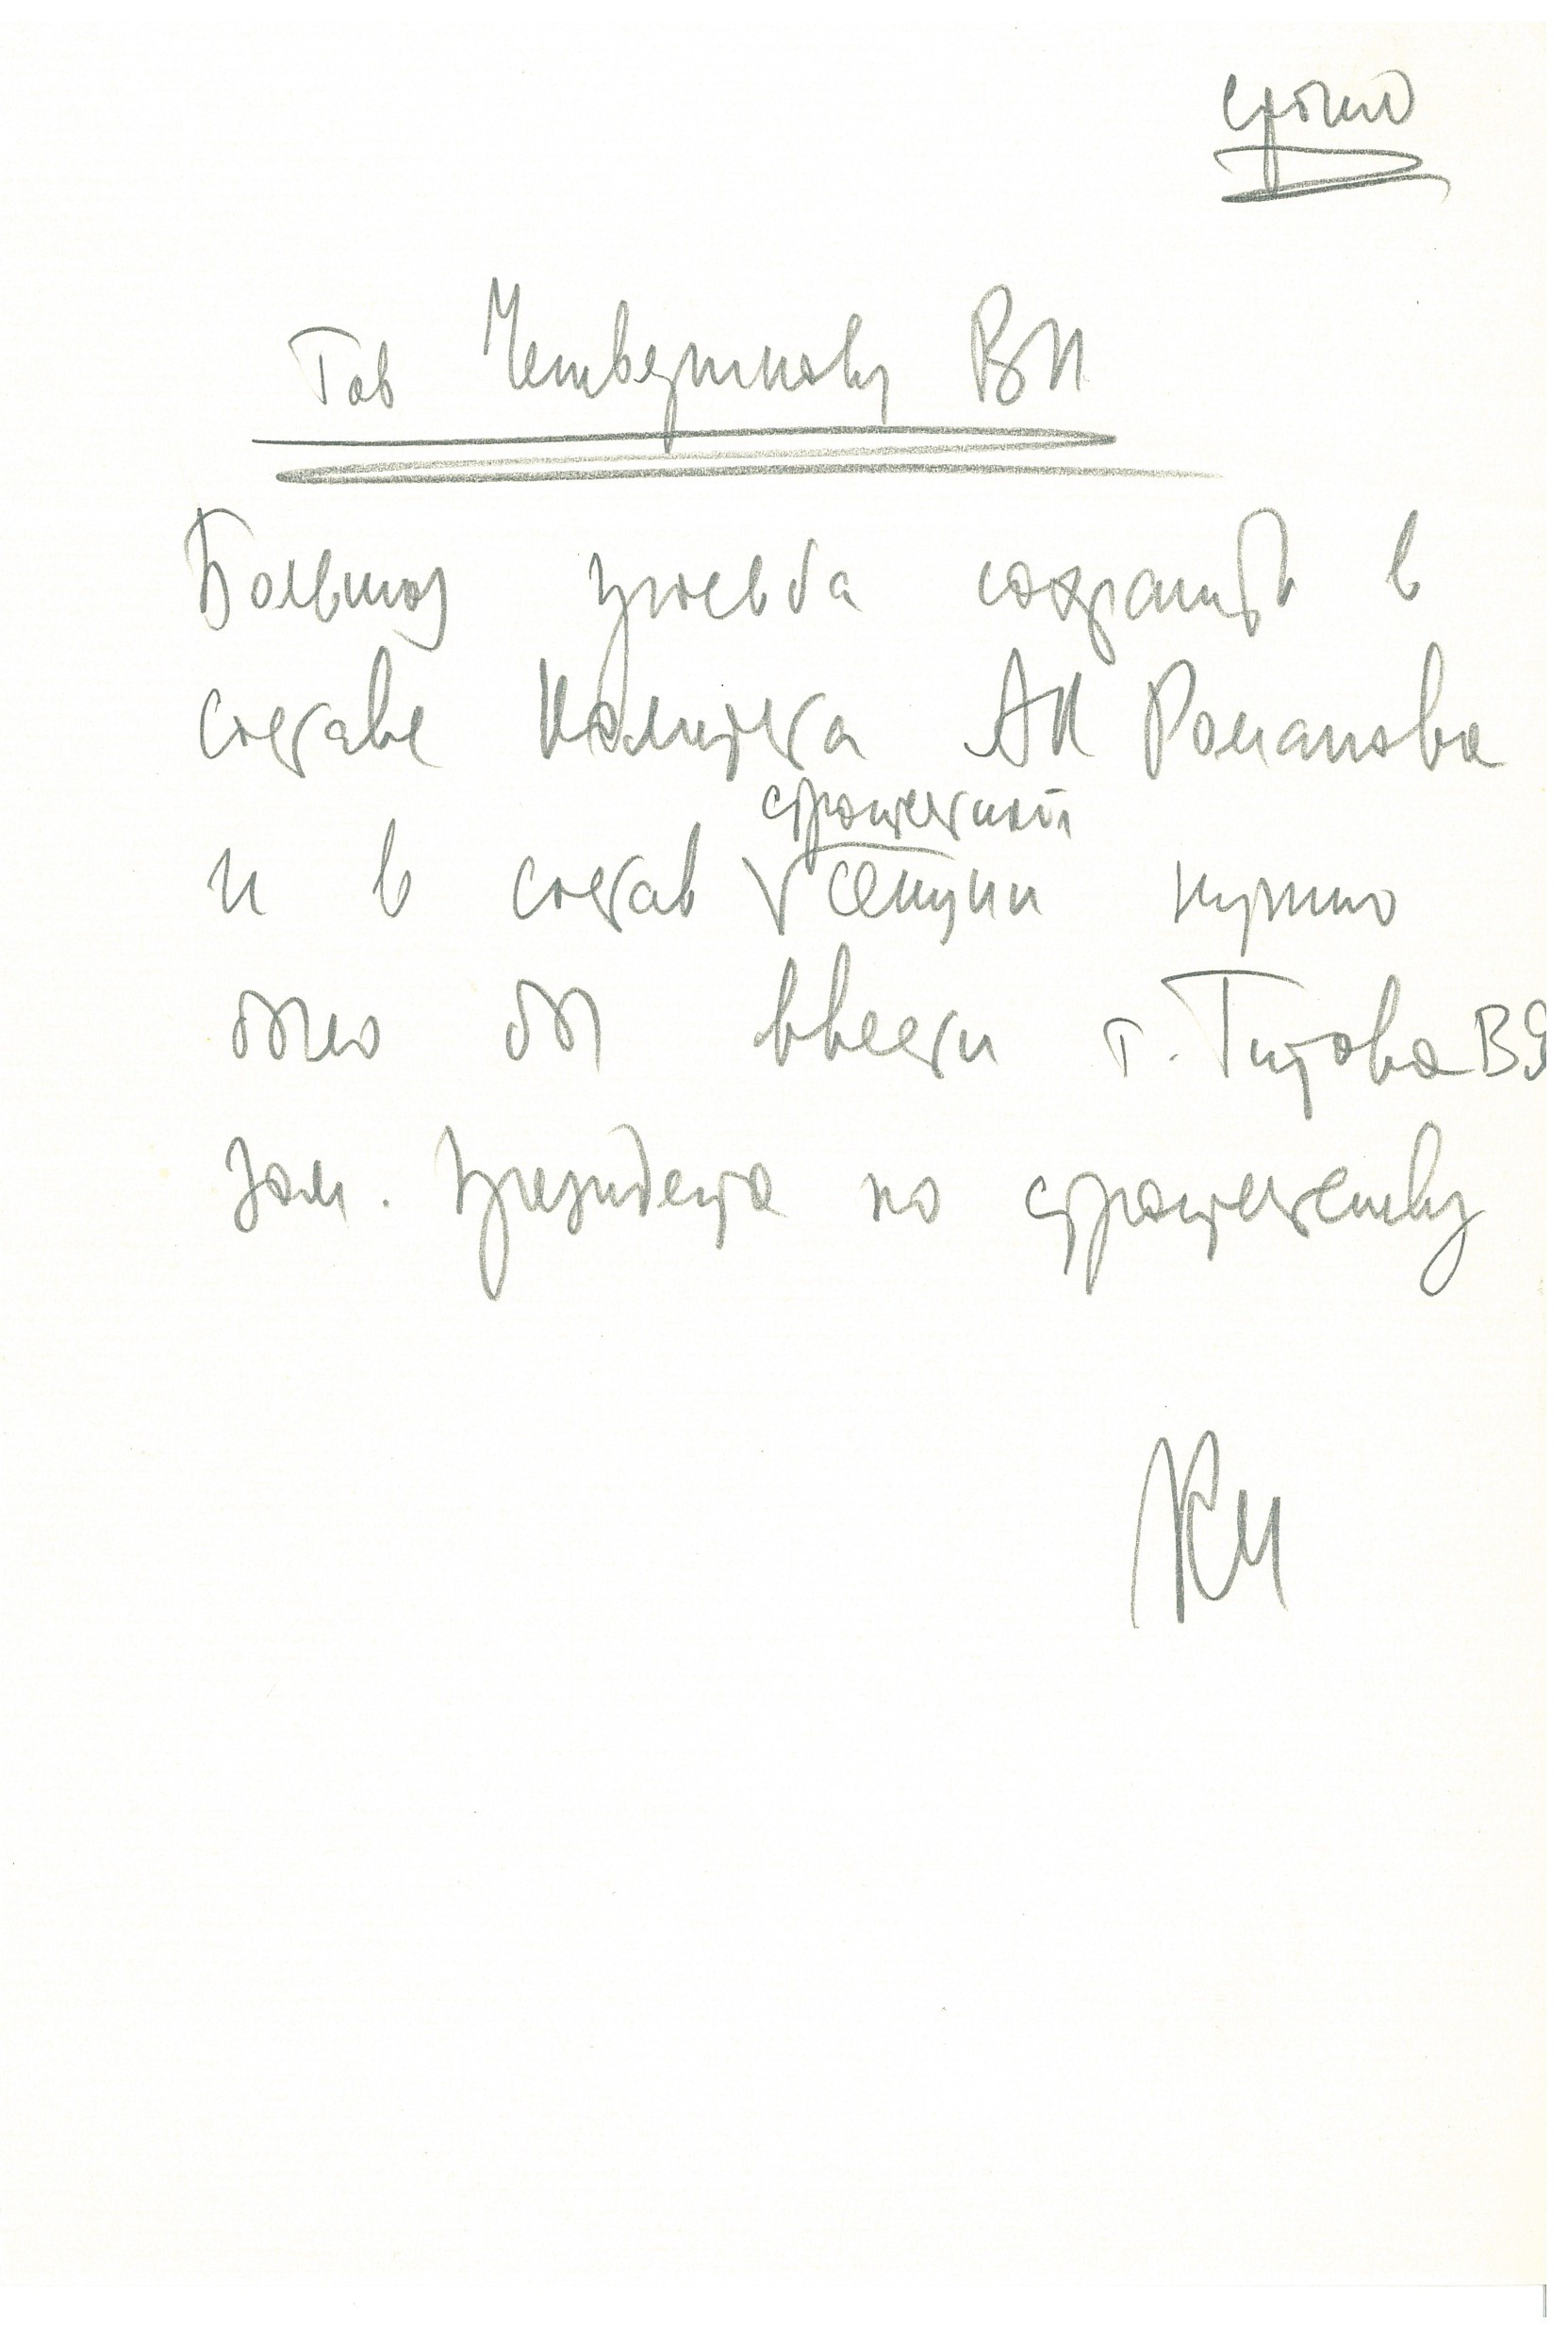 срочно
Тов Четверткову ВИ
Большая просьба сохранить в
составе Комитета АК Романова
строительной
и в состав секции нужно
было бы ввести т. Титова ВЯ
зам. президента по строительству